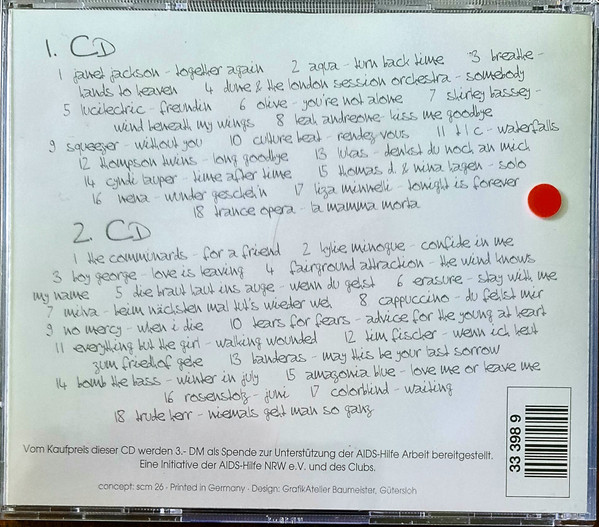 1. CD
1 janet jackson - together again 2 aqua - turn back time 3 breathe -
hands to heaven 4 dune & the london session orchestra - somebody
5 lucilectric - freundin 6 olive - you're not alone 7 shirley bassey -
wind beneath my wings 8 leah andreone - kiss me goodbye
9 squeezer - without you 10 culture beat - rendez vous 11 t l c - waterfalls
12 thompson twins - long goodbye 13 lukas - denkst du noch an mich
14 cyndi lauper - time after time 15 thomas d. & nina hagen - solo
16 nena - wunder gescheh'n 17 liza minnelli - tonight is forever
18 trance opera - la mamma morta
2. CD
1 the communards - for a friend 2 kylie minogue - confide in me
3 boy george - love is leaving 4 fairground attraction - the wind knows
my name 5 die braut haut ins auge - wenn du gehst 6 erasure - stay with me
7 milva - beim nächsten mal tut's wieder weh 8 cappuccino - du fehlst mir
9 no mercy - when i die 10 tears for fears - advice for the young at heart
11 everything but the girl - walking wounded 12 tim fischer - wenn ich heut
zum friedhof gehe 13 banderas - may this be your last sorrow
14 bomb the bass - winter in july 15 amazonia blue - love me or leave me
16 rosenstolz - juni 17 colorblind - waiting
18 trude herr - niemals geht man so ganz
Vom Kaufpreis dieser CD werden 3.- DM als Spende zur Unterstützung der AIDS-Hilfe Arbeit bereitgestellt.
Eine Initiative der AIDS-Hilfe NRW e.V. und des Clubs.
concept: scm 26 · Printed in Germany · Design: GrafikAtelier Baumeister, Gütersloh
33 398 9